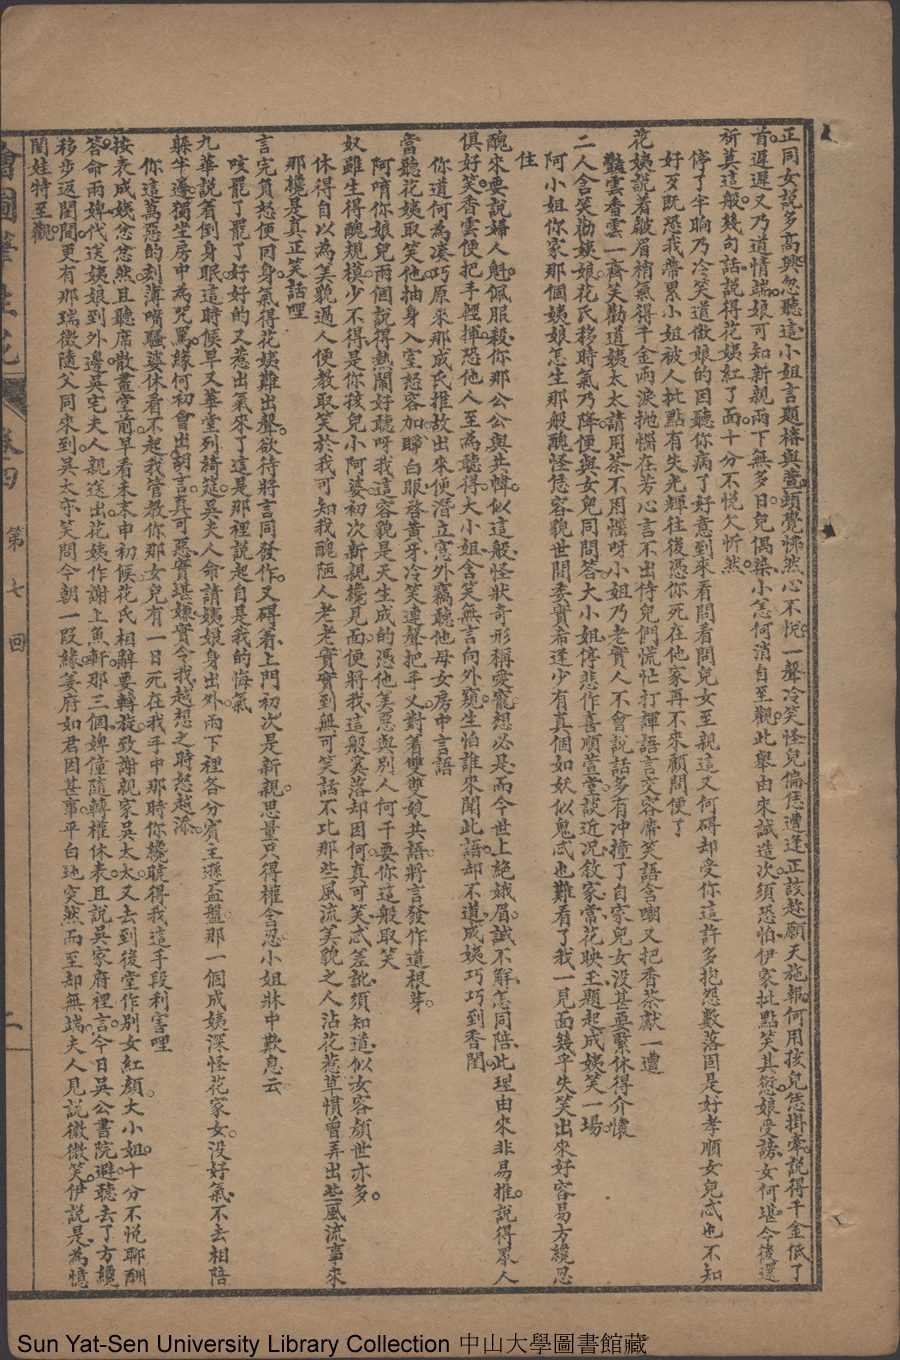 正同女說多高興忽聽這小姐言題椿與萱頓覺怫然心不悅一聲冷笑怪兒偏恁遭逢正該赴願天施報何用孩兒恁掛牽說得千金低了
首遲遲又乃道情端娘可知新親兩下無多日兒偶染小恙何消自至觀此舉由來誠造次須恐怕伊家批點笑其愆娘受謗女何堪今後還
祈莫這般幾句話說得花姨紅了面十分不悅欠忻然
停了半晌乃冷笑道做娘的因聽你病了好意到來看問看問兒女至親這又何碍却受你這許多抱怨數落固是好孝順女兒忒也不知
好歹既恐我帶累小姐被人批點有失光輝往後憑你死在他家再不來顧問便了
花姨說着皺眉梢氣得千金兩淚拋惱在芳心言不出侍兒們慌忙打諢語言交容帶笑語含嘲又把香茶獻一遭
艷雲香雲一齊笑勸道姨太太請用茶不用惱呀小姐乃老實人不會說話多有冲撞了自家兒女没甚要緊休得介懷
二人含笑勸姨娘花氏移時氣乃降便與女兒同問答大小姐停悲作喜順萱堂談近况敘家常花映玉題起成姨笑一場
阿小姐你家那個姨娘怎生那般醜怪恁容貌世間委實希逢少有真個如妖似鬼忒也難看了我一見面幾乎失笑出來好容易方纔忍
住
醜來要說婦人魁佩服殺你那公公與共幃似這般怪狀奇形稱愛寵想必是而今世上絕娥眉誠不解怎同陪此理由來非易推說得眾人
俱好笑香雲便把手輕揮恐他人至為聽得大小姐含笑無言向外窺生怕誰來聞此語却不道成姨巧巧到香閨
你道何為凑巧原來那成氏推故出來便潛立窓外竊聽他母女房中言語
當聽花姨取笑他抽身入室怒容加睜白眼啓黃牙冷笑連聲把手叉對着雙雙娘共語將言發作道根芽
阿唷你娘兒兩個說得熱鬧好聽呀我這容貌是天生成的憑他美惡與別人何干要你這般取笑
奴雖生得醜規模少不得是你孩兒小阿婆初次新親纔見面便將我這般奚落却因何真可笑忒差訛須知道似汝容顏世亦多
休得自以為美貌過人便教取笑於我可知我醜陋人老老實實到無可笑話不比那些風流美貌之人沾花惹草慣曾弄出些風流事來
那纔是真正笑話哩
言完負怒便回身氣得花姨難出聲欲待將言同發作又碍着上門初次是新親思量只得權含忍小姐牀中欺息云
咳罷了罷了好好的又惹出氣來了這是那裡說起自是我的悔氣
九華說着倒身眠這時候早又華堂列綺筵吳夫人命請姨娘身出外兩下裡各分賓主遜盃盤那一個成姨深怪花家女没好氣不去相陪
躲半邊獨坐房中為咒罵緣何初會出胡言真可惡實堪嫌實令我越想之時怒越添
你這萬惡的刻薄嘴騷婆休看不起我管教你那女兒有一日死在我手中那時你纔曉得我這手段利害哩
按表成姨忿忿然且聽席散畫堂前早看未末申初候花氏相辭要轉旋致謝親家吳太太又去到後堂作別女紅顏大小姐十分不悅聊酬
答命兩婢代送姨娘到外邊吳宅夫人親送出花姨作謝上魚軒那三個婢僮隨轉權休表且說吳家府裡言今日吳公書院避聽去了方纔
移步返閨間更有那瑞徵隨父同來到吳太守笑問今朝一段緣姜府如君因甚事平白地突然而至却無端夫人見說微微笑伊說是為憶
閨娃特至觀
繪圖筆生花
卷四
第七回
二
Sun Yat-Sen University Library Collection 中山大學圖書館藏